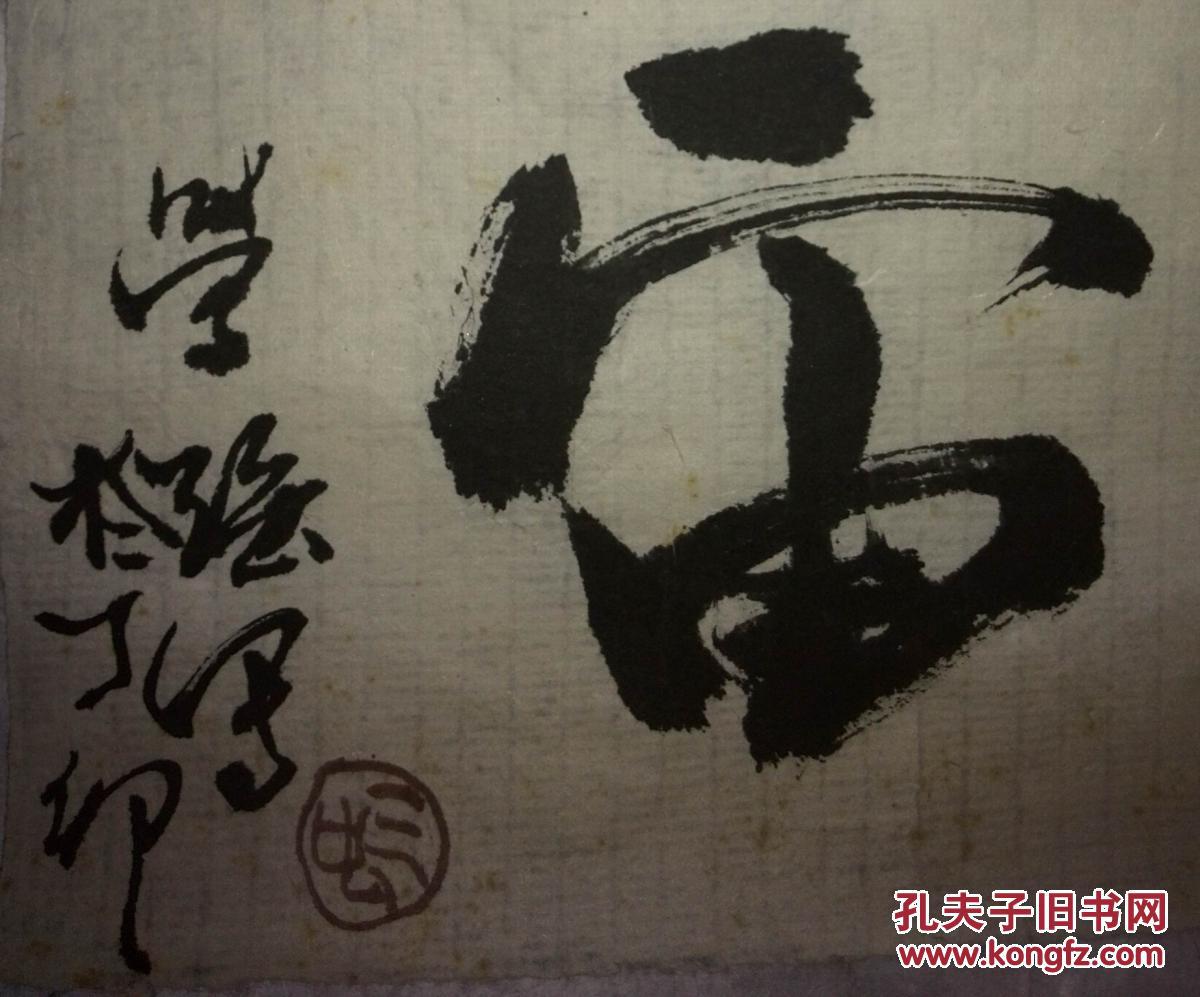 宙
學
於丁卯
孔夫子旧书网
www.kongfz.com